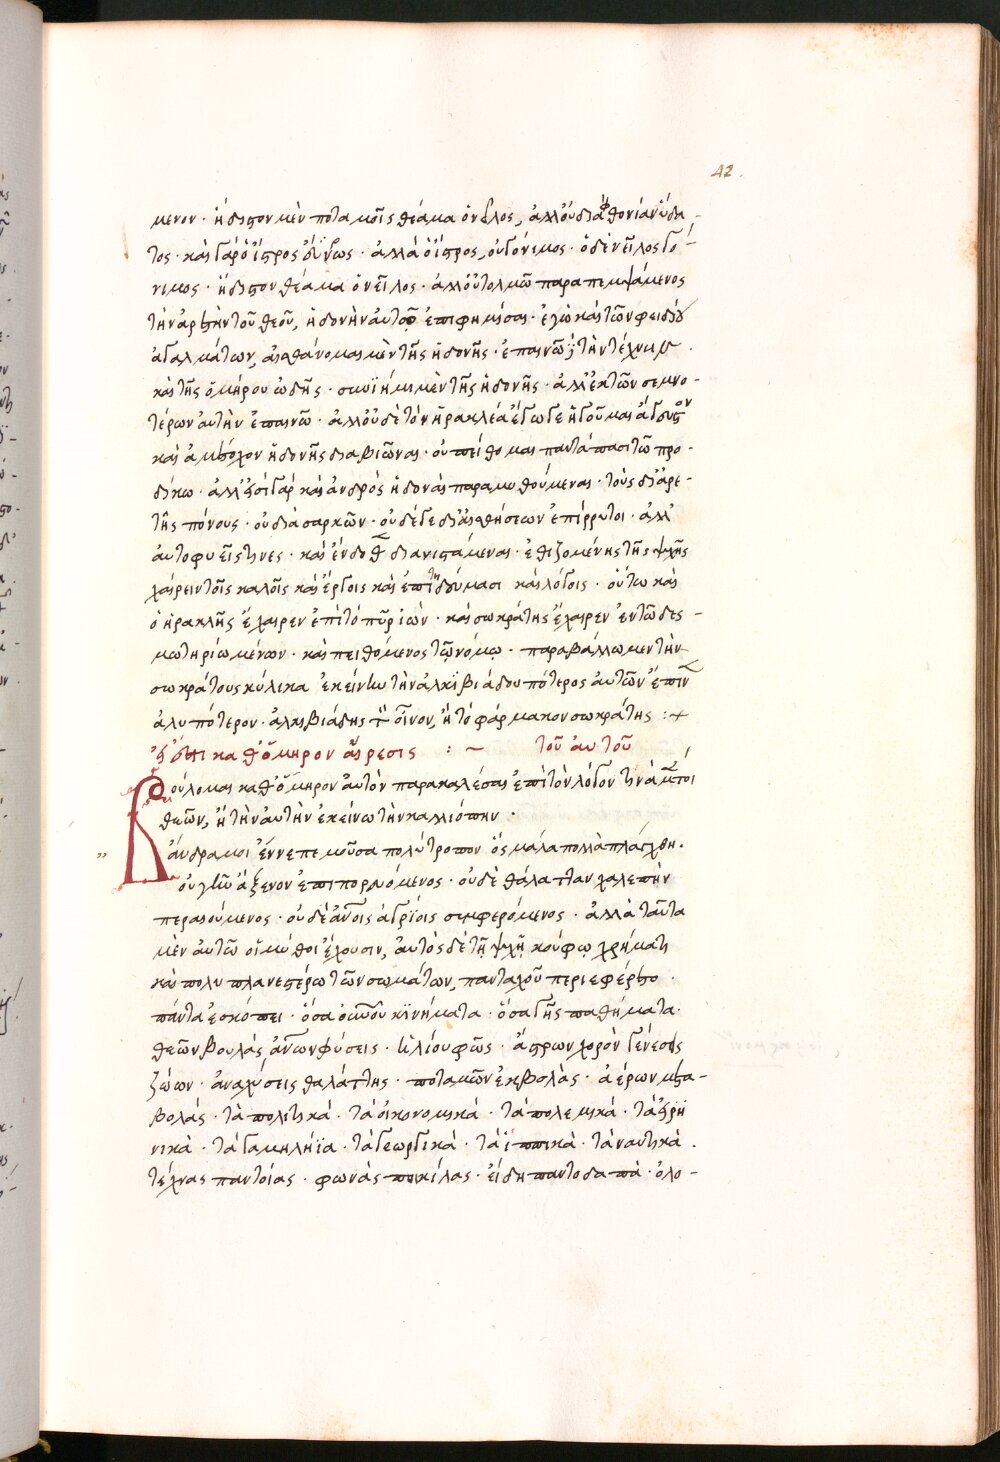 42.
μενον· ἥδιστον μὲν ποταμοῖς θέαμα ὁ νεῖλος, ἀλλ' οὐ διὰ ἀφθονίαν ὕδα-
τος· καὶ γὰρ ὁ ἴστρος εὔϋδρος· ἀλλὰ ὁ ἴστρος, οὐ γόνιμος· ὁ δὲ νεῖλος γό-
νιμος· ἥδιστον θέαμα ὁ νεῖλος· ἀλλ' οὐ τολμῶ παραπεμψάμενος
τὴν ἀρετὴν τοῦ θεοῦ, ἡδονὴν αὐτοῦ ἐπιφημίσαι· ἐγὼ καὶ τῶν φειδίου
ἀγαλμάτων, αἰσθάνομαι μὲν τῆς ἡδονῆς· ἐπαινῶ δὲ τὴν τέχνην.
καὶ τῆς ὁμήρου ᾠδῆς· συνίημι μὲν τῆς ἡδονῆς· ἀλλ' ἐκ τῶν σεμνο-
τέρων αὐτὴν ἐπαινῶ· ἀλλ' οὐδὲ τὸν ἡρακλέα ἔγωγε ἡγοῦμαι ἄγευστον
καὶ ἀμέτοχον ἡδονῆς διαβιῶναι· οὐ πείθομαι παντάπασι τῷ προ-
δίκῳ· ἀλλ' εἰσὶ γὰρ καὶ ἀνδρὸς ἡδοναὶ παραμυθούμεναι· τοὺς δι' ἀρε-
τῆς πόνους· οὐ διὰ σαρκῶν· οὐδέ γε δι' αἰσθήσεων ἐπίρρυτοι· ἀλλ'
αὐτοφυεῖς τινες· καὶ ἔνδοθεν διανιστάμεναι· ἐθιζομένης τῆς ψυχῆς
χαίρειν τοῖς καλοῖς καὶ ἔργοις καὶ ἐπιτηδεύμασι καὶ λόγοις· οὕτω καὶ
ὁ ἡρακλῆς ἔχαιρεν ἐπὶ τὸ πῦρ ἰών· καὶ σωκράτης ἔχαιρεν ἐν τῷ δεσ-
μωτηρίῳ μένων· καὶ πειθόμενος τῷ νόμῳ· παραβάλλωμεν τὴν
σωκράτους κύλικα ἐκείνῃ τῇ ἀλκιβιάδου πότερος αὐτῶν ἔπινεν
ἀλυπότερον· ἀλκιβιάδης τὸν οἶνον, ἢ τὸ φάρμακον σωκράτης :+
εἰ ἔστι καθ' ὅμηρον αἵρεσις : ~ τοῦ αὐτοῦ
Βούλομαι καθ' ὅμηρον αὐτὸν παρακαλέσας ἐπὶ τὸν λόγον τινὰ
θεῶν, ἢ τὴν αὐτὴν ἐκείνῳ τὴν καλλιόπην·
,, ἄνδρα μοι ἔννεπε μοῦσα πολύτροπον ὃς μάλα πολλὰ πλάγχθη.
οὐ γῆν ἄξενον ἐπιπορευόμενος· οὐδὲ θάλατταν χαλεπὴν
περαιούμενος· οὐδὲ ἀνοις ἀγρίοις συμφερόμενος· ἀλλὰ ταῦτα
μὲν αὐτῷ οἱ μῦθοι ἔχουσιν, αὐτὸς δὲ τῇ ψυχῇ κούφῳ χρήματι
καὶ πολυπλανεστέρῳ τῶν σωμάτων, πανταχοῦ περιεφέρετο·
πάντα ἐσκόπει· ὅσα οὐνοῦ κινήματα· ὅσα γῆς παθήματα.
θεῶν βουλάς, ἀνων φύσεις· ἡλίου φῶς· ἄστρων χορὸν γένεσεις
ζώων· ἀναχύσεις θαλάττης· ποταμῶν ἐκβολάς· ἀέρων μετα-
βολάς· τὰ πολιτικά· τὰ οἰκονομικά· τὰ πολεμικά· τὰ εἰρη-
νικά· τὰ γαμηλήϊα· τὰ γεωργικά· τὰ ἱππικά· τὰ ναυτικά.
τέχνας παντοίας· φωνὰς ποικίλας· εἴδη παντοδαπά· ὀλο-